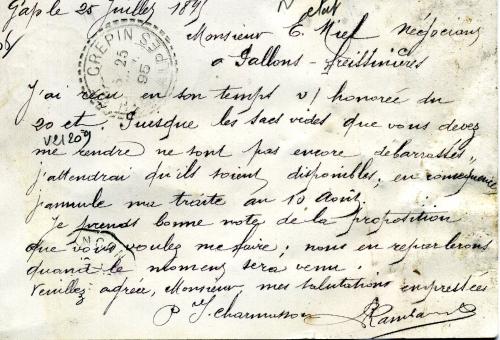 Gap le 25 Juillet 18
Monsieur E. Négociant
à Pallons - Freissinières
CRÉPIN
25
95
J'ai reçu en son temps v/ honorée du
20 ct. Puisque les sacs vides que vous devez
me rendre ne sont pas encore débarrassés,
j'attendrai qu'ils soient disponibles, en conséquence
j'annule ma traite au 10 Août.
Je prends bonne note de la proposition
que vous voulez me faire; nous en reparlerons
quand le moment sera venu.
Veuillez agréer, Monsieur, mes salutations empressées
P. J. Charmasson